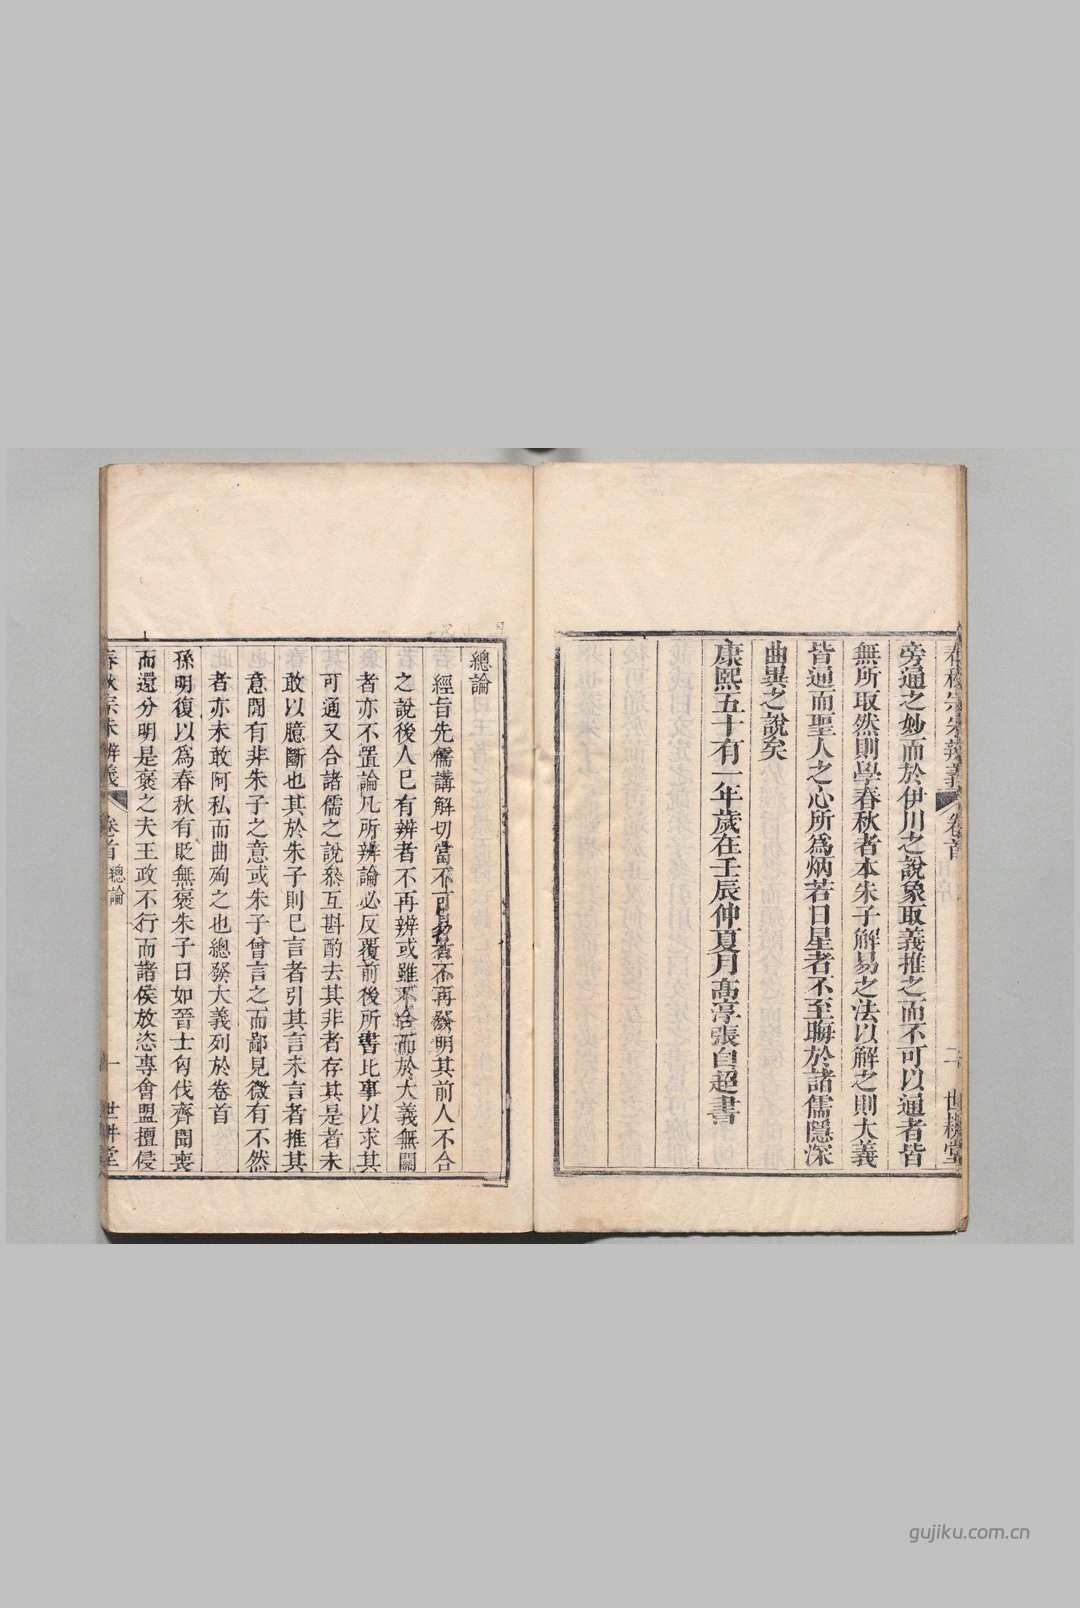 春秋宗朱辨義
卷首
自序
二
世耕堂
旁通之妙而於伊川之說象取義推之而不可以通者皆
無所取然則學春秋者本朱子解易之法以解之則大義
皆通而聖人之心所為炳若日星者不至晦於諸儒隱深
曲異之說矣
康熙五十有一年歲在壬辰仲夏月高淳張自超書
總論
經旨先儒講解切當不可易者不再發明其前人不合
之說後人已有辨者不再辨或雖不合而於大義無關
者亦不置論凡所辨論必反覆前後所書比事以求其
可通又合諸儒之說叅互斟酌去其非者存其是者未
敢以臆斷也其於朱子則已言者引其言未言者推其
意間有非朱子之意或朱子曾言之而鄙見微有不然
者亦未敢阿私而曲殉之也總發大義列於卷首
孫明復以為春秋有貶無褒朱子曰如晉士匄伐齊聞喪
而還分明是褒之夫王政不行而諸侯放恣專會盟擅侵
春秋宗朱辨義
卷首
總論
一
世耕堂
gujiku.com.cn